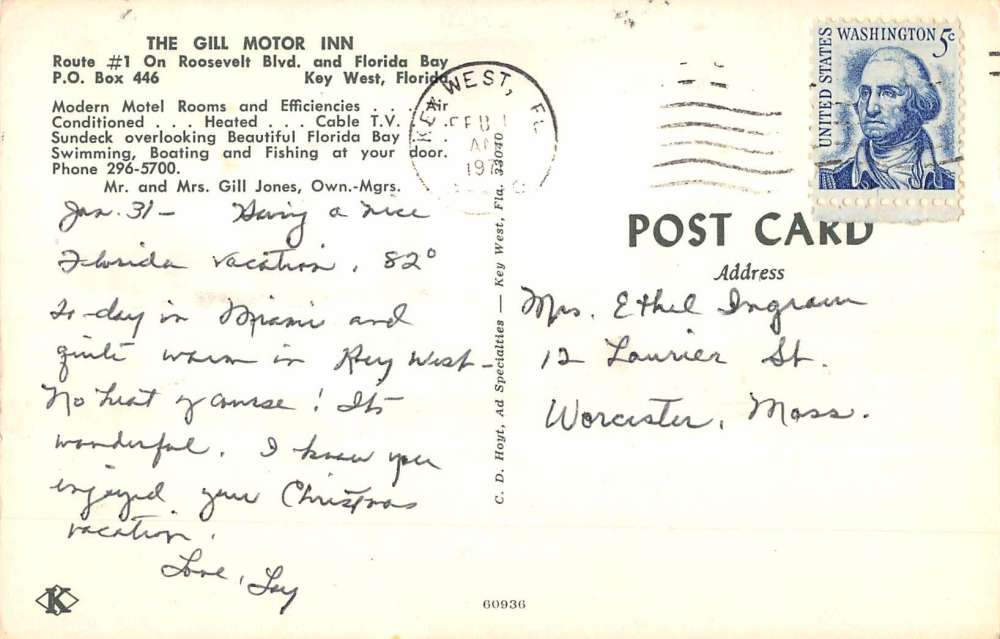 THE GILL MOTOR INN
Route #1 On Roosevelt Blvd. and Florida Bay
P.O. Box 446 Key West, Florida
Modern Motel Rooms and Efficiencies . . . Air
Conditioned . . . Heated . . . Cable T.V. . . .
Sundeck overlooking Beautiful Florida Bay . . .
Swimming, Boating and Fishing at your door.
Phone 296-5700.
Mr. and Mrs. Gill Jones, Own.-Mgrs.
Jan. 31 - Having a nice
Florida vacation. 82°
to-day in Miami and
quite warm in Key West -
No heat of course! Its
wonderful. I know you
enjoyed your Christmas
vacation.
Love,
K
KEY WEST, FL
FEB 1
AM
197
C. D. Hoyt, Ad Specialties — Key West, Fla. 33040
60936
UNITED STATES
WASHINGTON 5c
POST CARD
Address
Mrs. Ethel Ingram
12 Laurier St.
Worcester, Mass.